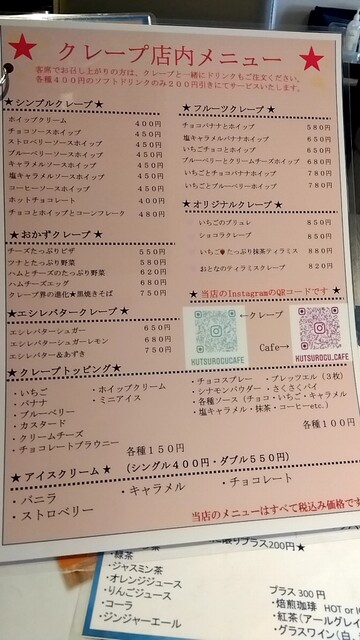 ★ クレープ店内メニュー ★
客席でお召し上がりの方は、クレープと一緒にドリンクもご注文ください。
各種400円のソフトドリンクのみ200円引きにてサービスいたします。
★シンプルクレープ★
ホイップクリーム 400円
チョコソースホイップ 450円
ストロベリーソースホイップ 450円
ブルーベリーソースホイップ 450円
キャラメルソースホイップ 450円
塩キャラメルソースホイップ 450円
コーヒーソースホイップ 450円
ホットチョコレート 400円
チョコとホイップとコーンフレーク 480円
★おかずクレープ★
チーズたっぷりピザ 550円
ツナとたっぷり野菜 580円
ハムとチーズのたっぷり野菜 620円
ハムチーズエッグ 680円
クレープ界の進化★黒焼きそば 750円
★エシレバタークレープ★
エシレバターシュガー 650円
エシレバターシュガーレモン 680円
エシレバター&あずき 750円
★フルーツクレープ★
チョコバナナとホイップ 580円
塩キャラメルバナナホイップ 650円
いちごチョコとホイップ 650円
ブルーベリーとクリームチーズホイップ 680円
いちごとチョコバナナホイップ 780円
いちごとブルーベリーホイップ 780円
★オリジナルクレープ★
いちごのブリュレ 850円
ショコラクレープ 850円
いちご たっぷり抹茶ティラミス 880円
おとなのティラミスクレープ 820円
★ 当店のInstagramのQRコードです ★
←クレープ
Cafe→
HUTSUROGUCAFE
HUTSUROGU.CAFE
★クレープトッピング★
・いちご
・バナナ
・ブルーベリー
・カスタード
・クリームチーズ
・チョコレートブラウニー
・ホイップクリーム
・ミニアイス
各種150円
・チョコスプレー ・プレッツエル（3枚）
・シナモンパウダー ・さくさくパイ
・各種ソース（チョコ・いちご・キャラメル
・塩キャラメル・抹茶・コーヒーetc.）
各種100円
★アイスクリーム★ （シングル400円・ダブル550円）
・バニラ
・ストロベリー
・キャラメル
・チョコレート
当店のメニューはすべて税込み価格です
プラス200円★
・緑茶
・ジャスミン茶
・オレンジジュース
・りんごジュース
・コーラ
・ジンジャーエール
プラス300円
・焙煎珈琲 HOT or
・紅茶（アールグレイ
・グラスワイン（白、